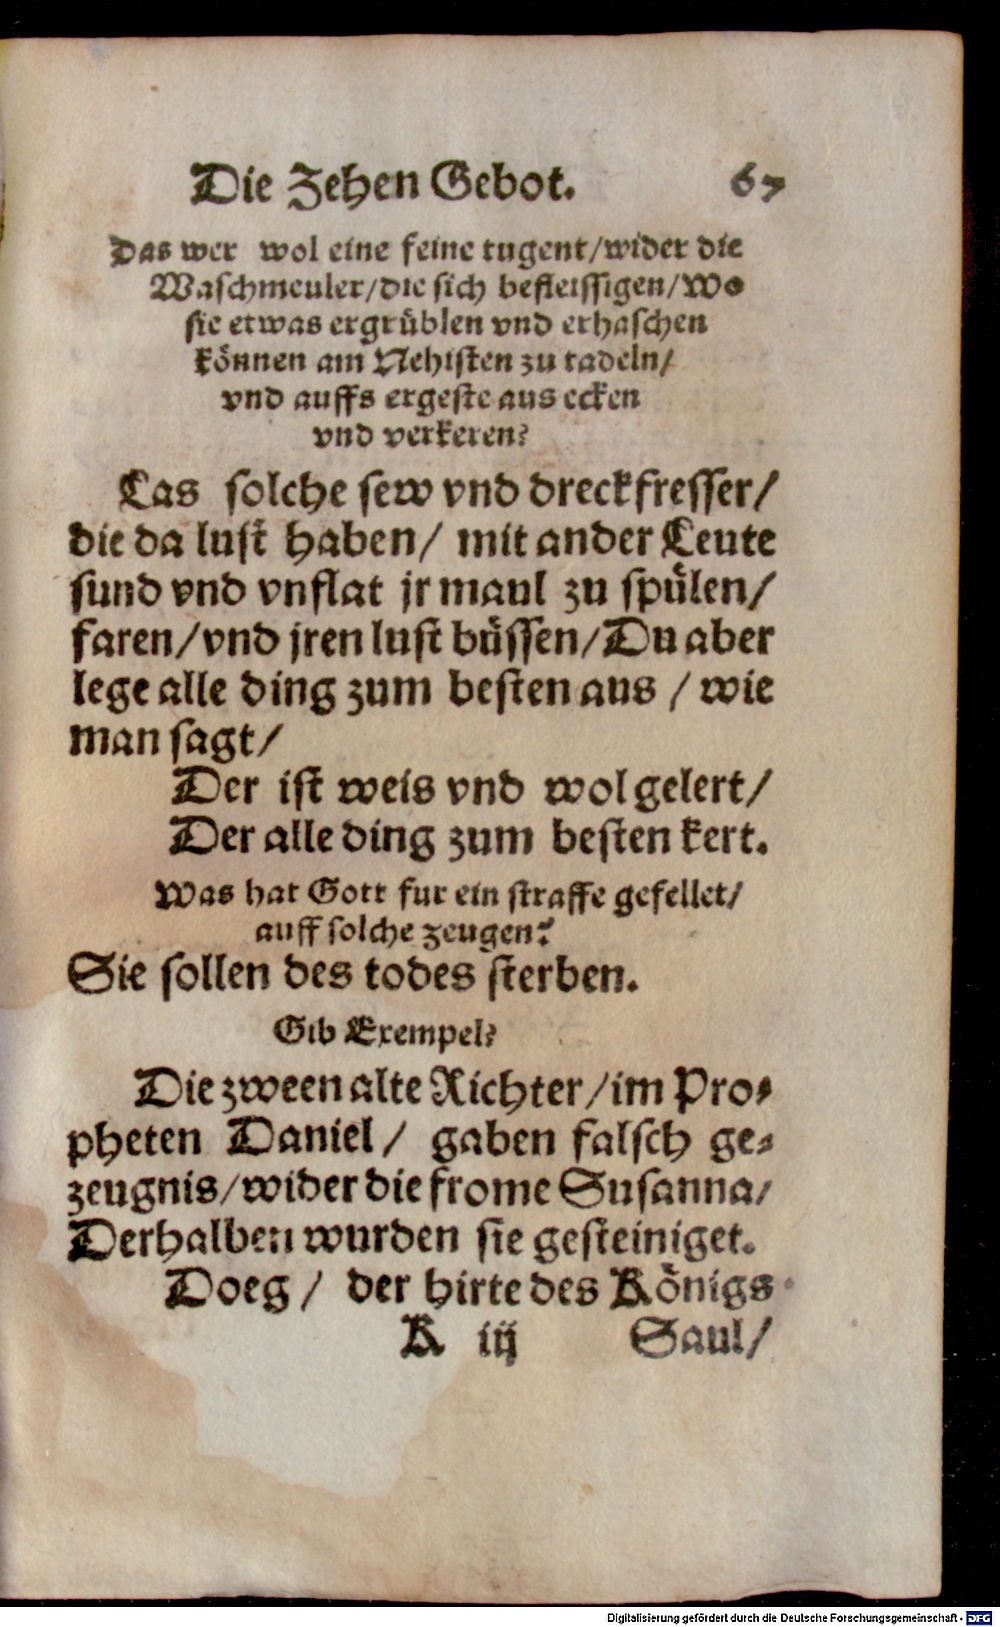 Die Zehen Gebot. 67
Das wer wol eine feine tugent/wider die
Waschmeuler/die sich befleissigen/Wo
sie etwas ergrüblen vnd erhaschen
können am Nehisten zu tadeln/
vnd auffs ergeste aus ecken
vnd verkeren?
Las solche sew vnd dreckfresser/
die da lust haben/ mit ander Leute
sund vnd vnflat jr maul zu spülen/
faren/vnd jren lust büssen/Du aber
lege alle ding zum besten aus / wie
man sagt/
Der ist weis vnd wol gelert/
Der alle ding zum besten kert.
Was hat Gott fur ein straffe gefellet/
auff solche zeugen?
Sie sollen des todes sterben.
Gib Exempel?
Die zween alte Richter/im Pro-
pheten Daniel/ gaben falsch ge-
zeugnis/wider die frome Susanna/
Derhalben wurden sie gesteiniget.
Doeg/ der hirte des Königs
K iij Saul/
Digitalisierung gefördert durch die Deutsche Forschungsgemeinschaft - DFG